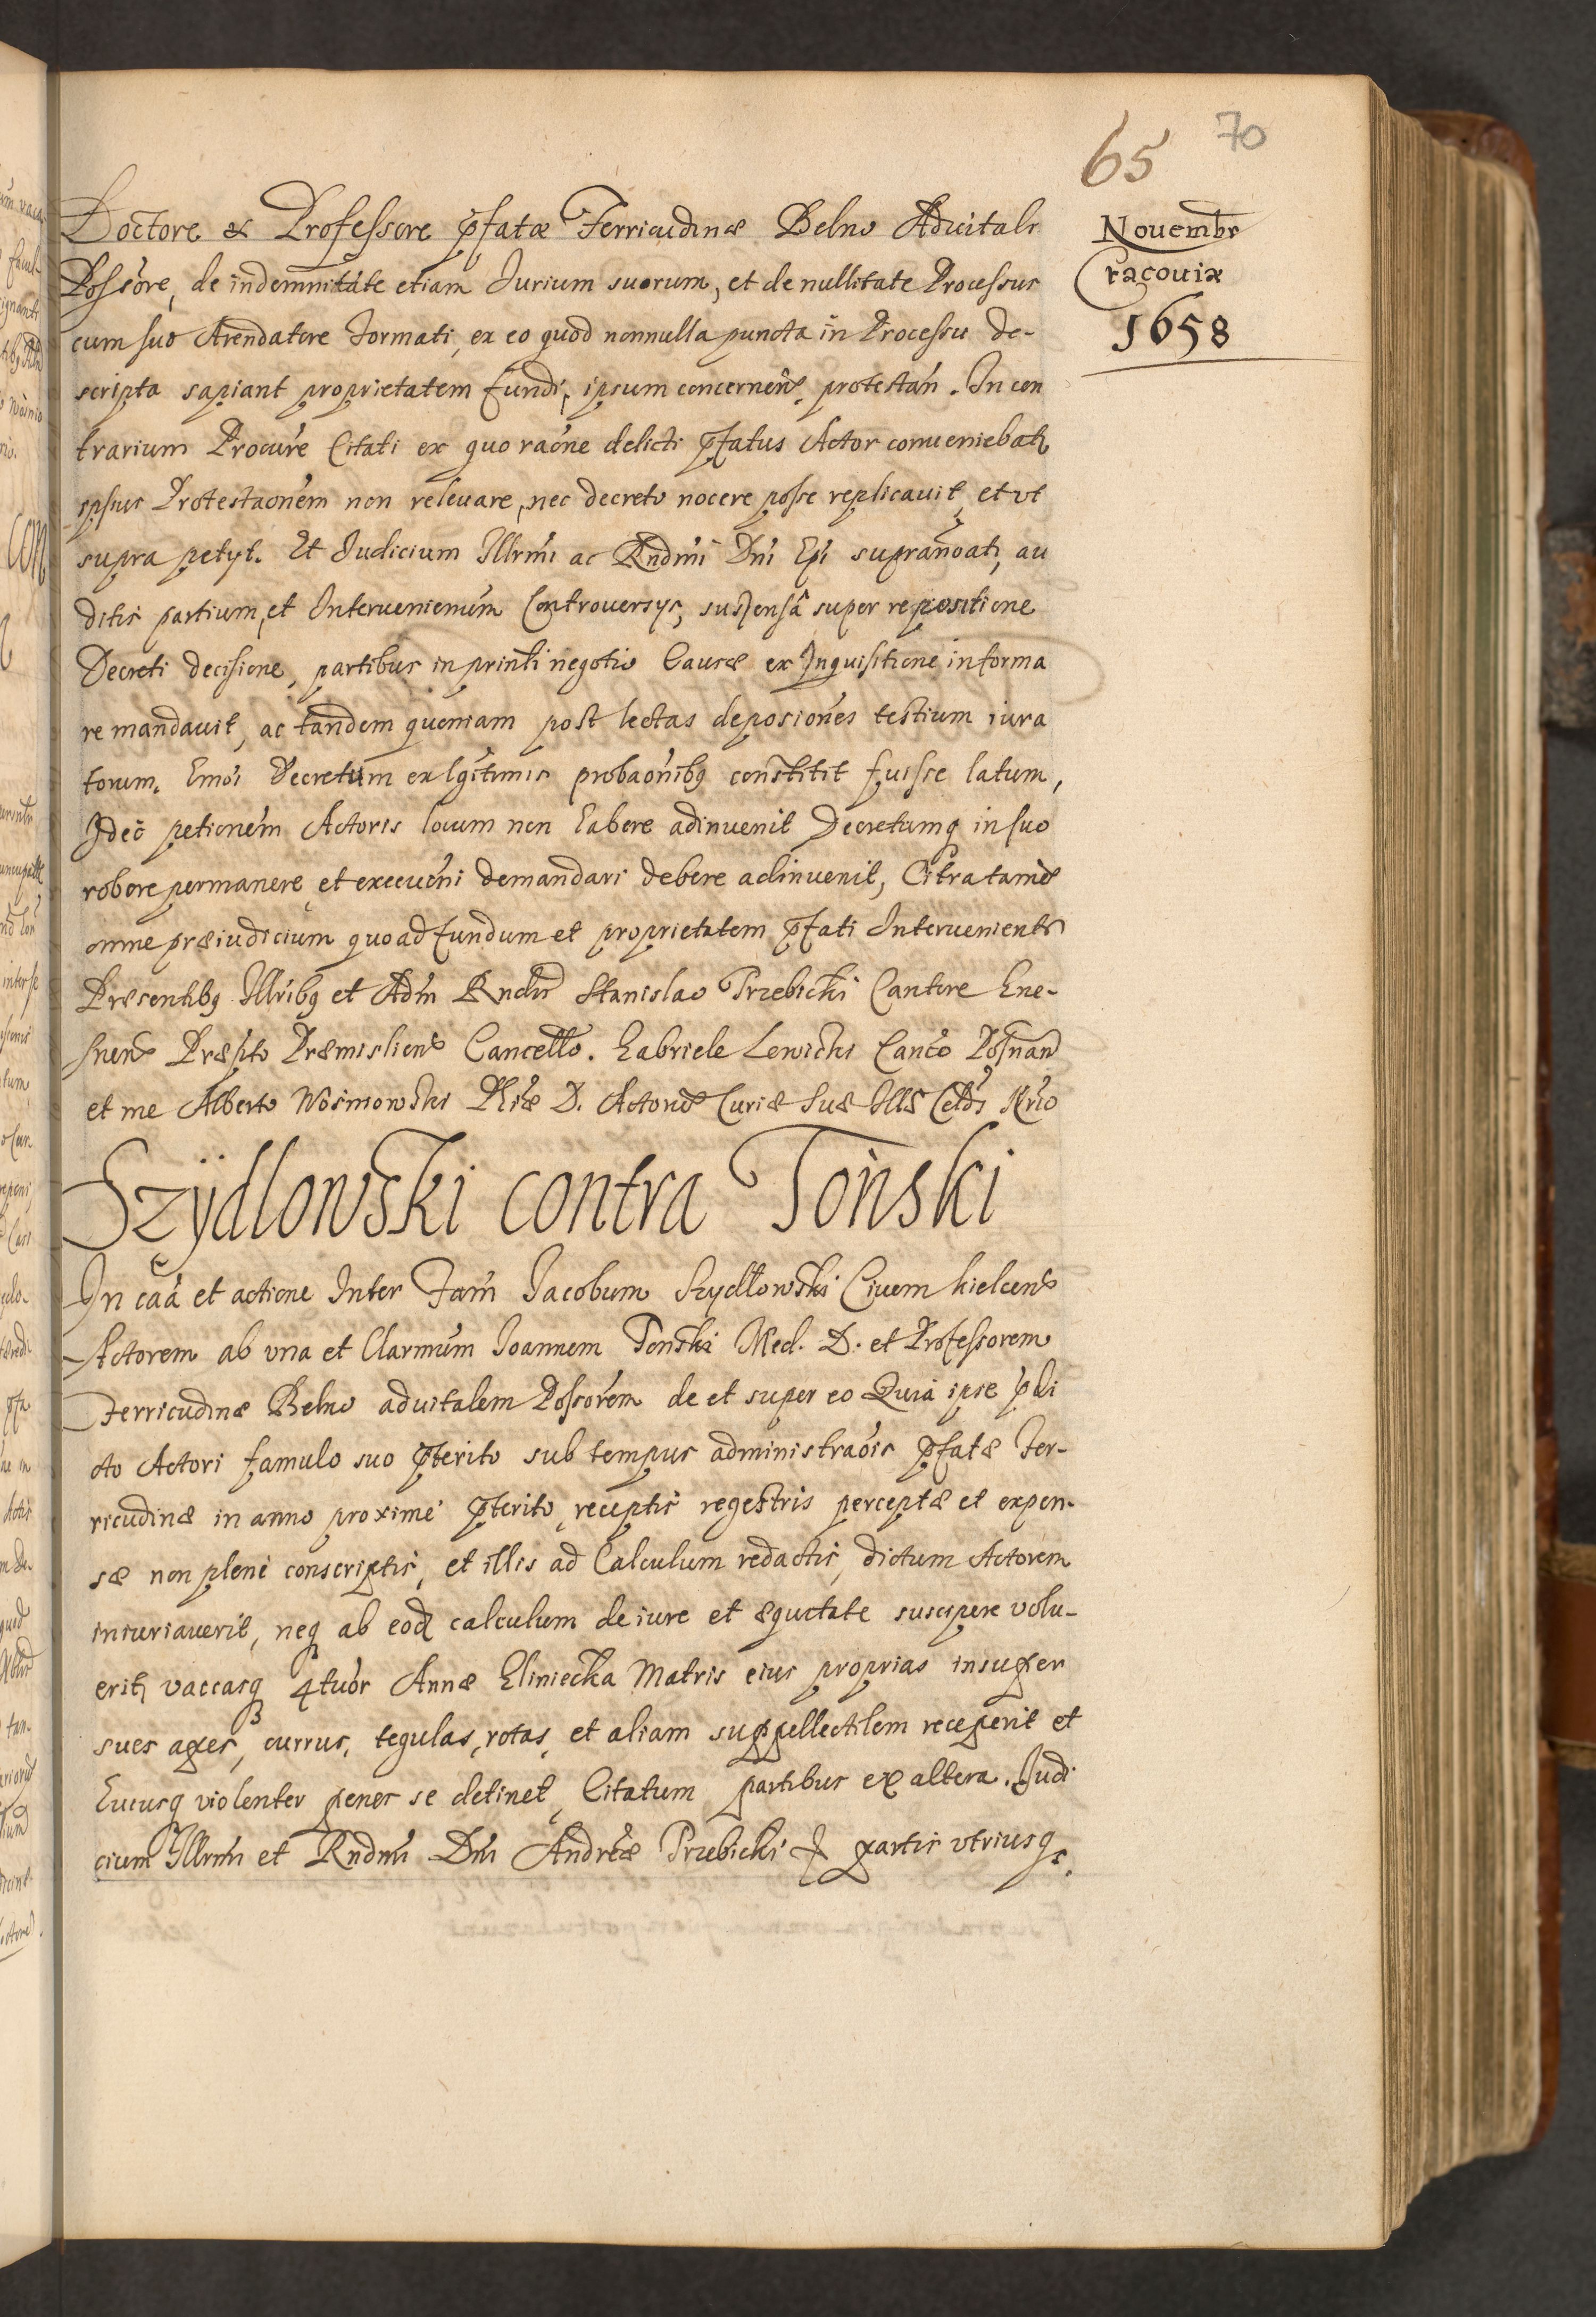 65 70
Nouembr
Cracouiæ
1658
Doctore & Professore p̃fatæ Ferricudinæ Belno Aduitali
Possõre, de indemnitáte etiam Iurium suorum, et de nullitate Processus
cum suo Arendatore Formati, ex eo quod nonnulla puncta in Processu de-
scripta sapiant proprietatem fundi, ipsum concernen̄. protestań. In con
trarium Procure Citati ex quo raóne delicti p̃fatus Actor conueniebatʒ
ipsius Protestaonem non releuare, nec decreto nocere posse replicauit, et vt
supra petyt. Et Iudicium Illrmi ac Rndmi Dni Epi supranoati, au
ditis partium, et Interuenienum Controuersys, suspensâ super repositione
Decreti decisione, partibus in printi negotio Causæ ex Inquisitione informa
re mandauit, ac tandem quoniam post lectas deposiones testium iura
torum. Emoi Decretum ex lgitimis probaonibʒ constitit fuisse latum,
Ideo petionem Actoris locum non habere adinuenit Decretumq in suo
robore permanere, et execuoni demandari debere adinuenit, Citra tame
omne præiudicium quoad fundum et proprietatem p̃fati Interuenientis
Præsentibʒ Illribʒ et Adm Rndis Stanislao Trzebicki Cantore Gne-
snen̄ Præpto Præmislien̄ Cancello. Gabriele Lewicki Canco Posnan
et me Alberto Wośniowski Phiæ D. Actorū Curiæ Suæ Illæ Celdis Nrio
Szÿdlowski contra Tonski
In caa et actione Inter Fam Iacobum Szydłowski Ciuem kielcen̄
Actorem ab vna et Clarmum Ioannem Tonski Med. D. et Professorem
Ferricudinæ Belno aduitalem Possorem de et super eo Quia ipse p̃di
cto Actori famulo suo p̃terito sub tempus administraois p̃fatæ Fer-
ricudinæ in anno proxime p̃terito, receptis regestris perceptæ et expen-
sæ non plene conscriptis, et illis ad Calculum redactis, dictum Actorem
iniuriauerit, neq ab eod calculum de iure et æquitate suscipere volu-
erit, vaccasq 4tuor Annæ Gliniecka Matris eius proprias insuper
sues apes, currus, tegulas, rotas, et aliam suppellectilem receperit et
hucusq violenter penes se detinet, Citatum partibus ex altera. Iudi
cium Illrmi et Rndmi Dni Andreæ Trzebicki & partis vtriusq.